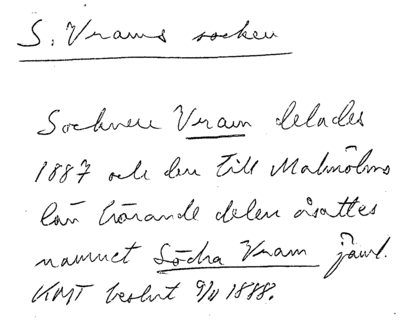 S. Vrams socken
Socknen Vram delades
1887 och den till Malmöhus
län hörande delen åsattes
namnet Södra Vram jäml.
KMT beslut 9/11 1888.